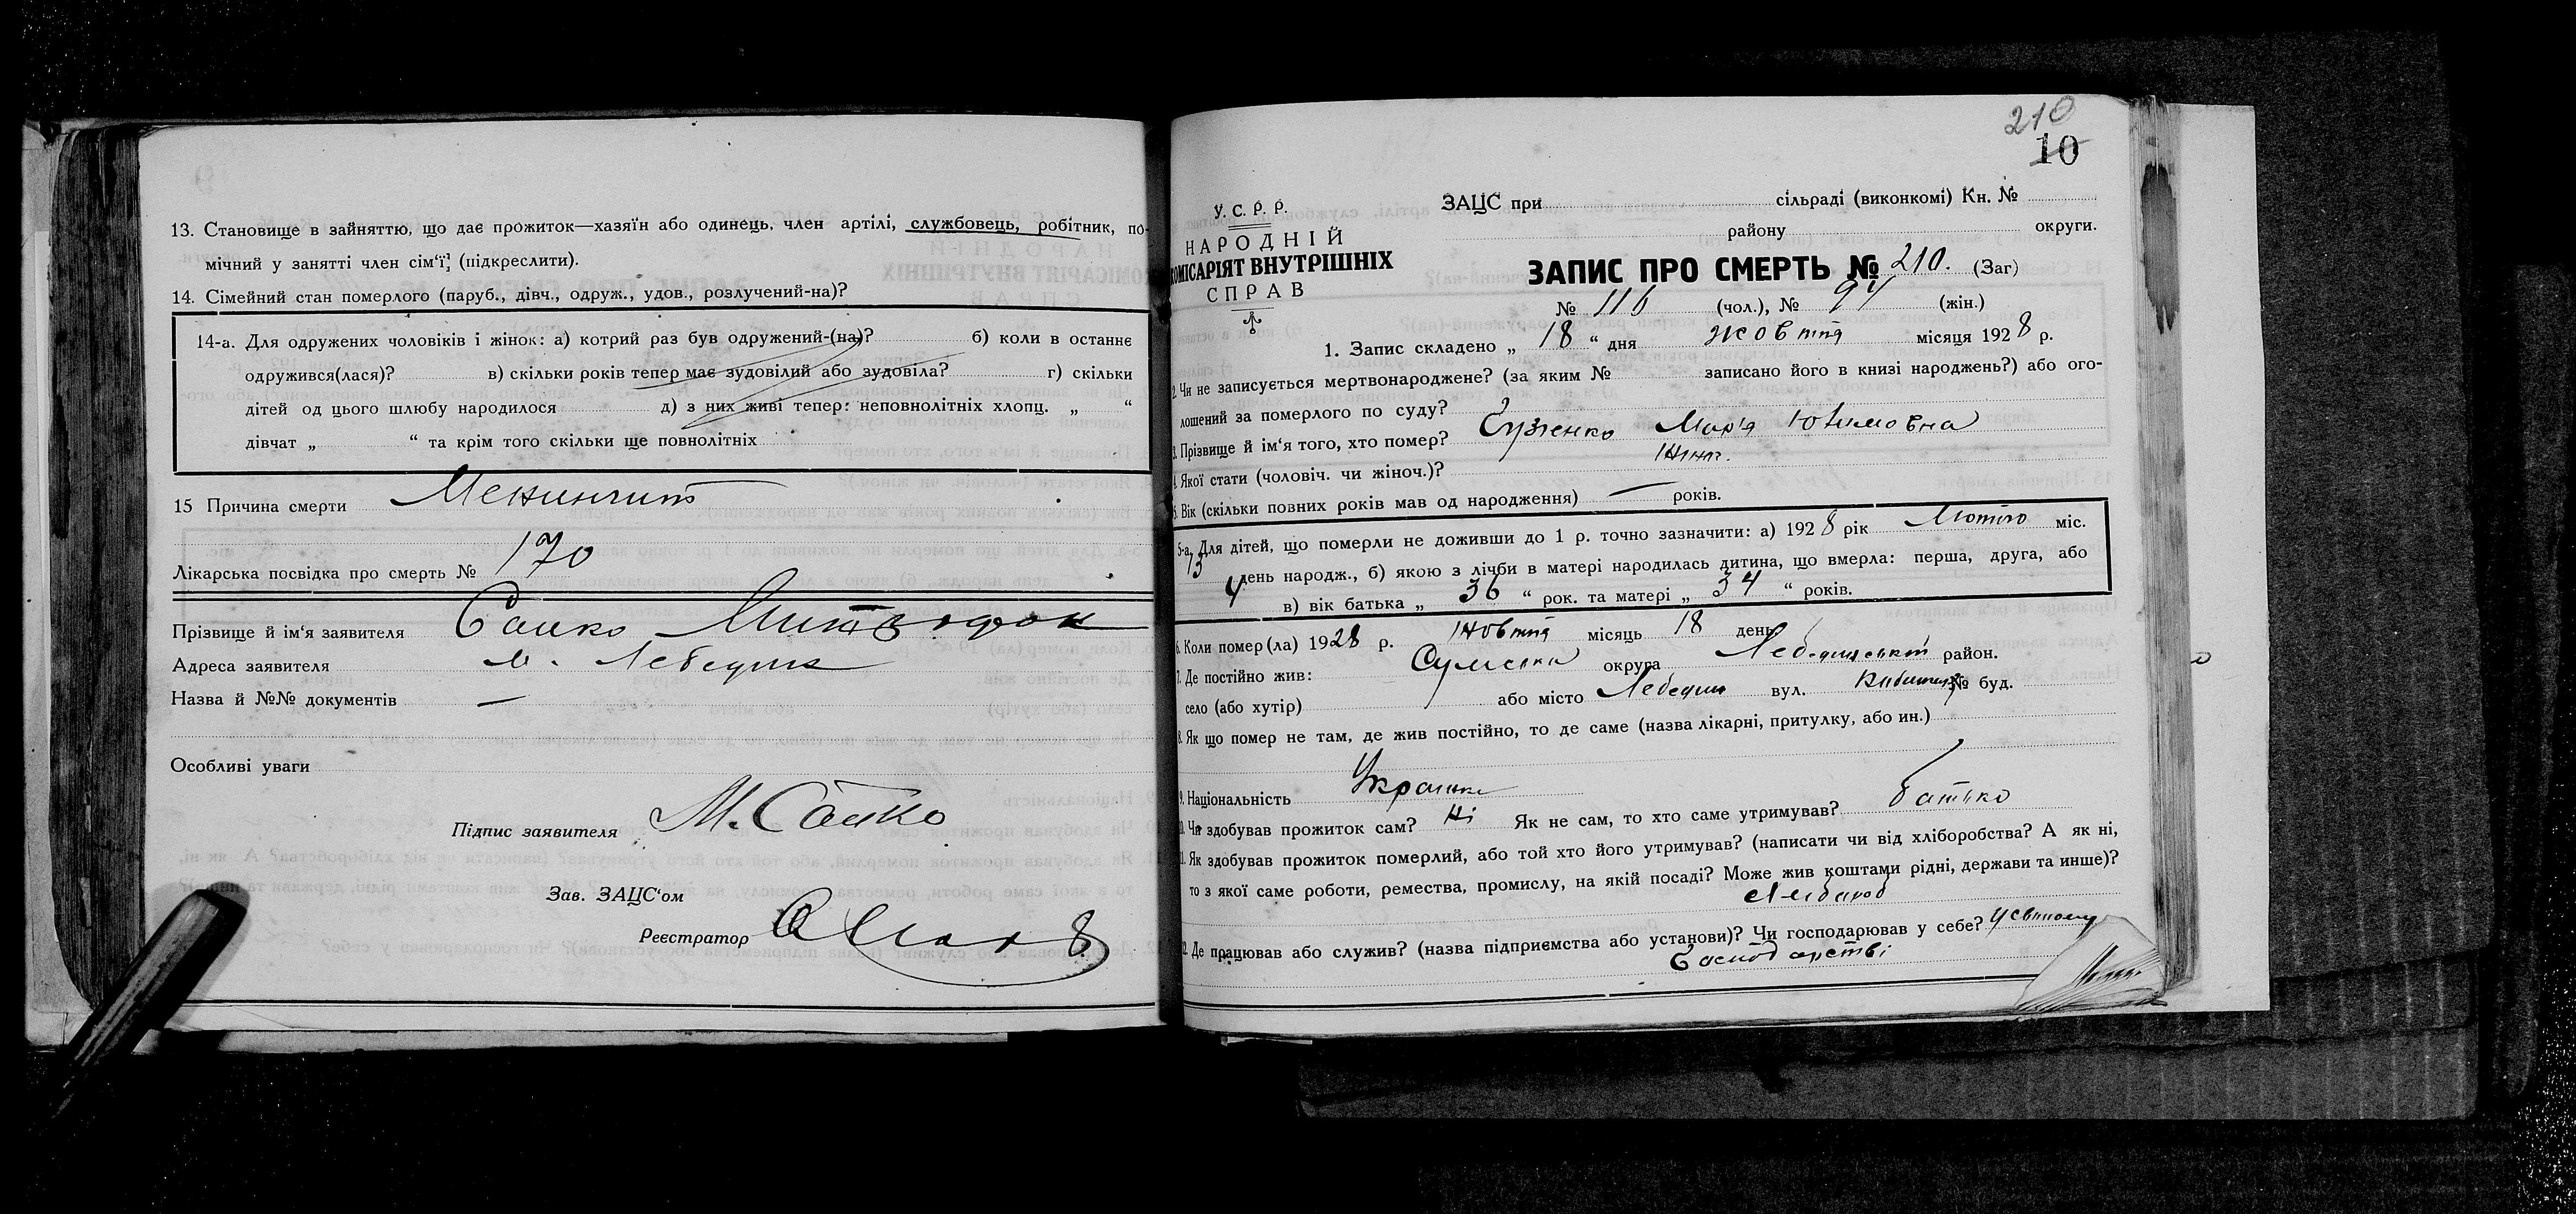 13. Становище в зайняттю, що дає прожиток—хазяїн або одинець, член артілі, службовець, робітник, по-
мічний у занятті член сім'ї, (підкреслити).
14. Сімейний стан померлого (паруб., дівч., одруж., удов., розлучений-на)?
14-а. Для одружених чоловіків і жінок: а) котрий раз був одружений-(на)? б) коли в останнє
одружився(лася)? в) скільки років тепер має зудовілий або зудовіла? г) скільки
дітей од цього шлюбу народилося д) з них живі тепер: неповнолітніх хлопц. „ “
дівчат „ “ та крім того скільки ще повнолітніх
15 Причина смерти Менингит
Лікарська посвідка про смерть № 170
Прізвище й ім'я заявителя Сайко
Адреса заявителя м. Лебедин
Назва й №№ документів —
Особливі уваги
Підпис заявителя М. Сайко
Зав. ЗАЦС'ом
Реєстратор
210
10
У. С. Р. Р.
НАРОДНІЙ
КОМІСАРІЯТ ВНУТРІШНІХ
СПРАВ
ЗАЦС при сільраді (виконкомі) Кн. №
району округи.
ЗАПИС ПРО СМЕРТЬ № 210. (Заг)
№ 116 (чол.), № 94 (жін.)
1. Запис складено „ 18 “ дня жовтня місяця 1928 р.
2. Чи не записується мертвонароджене? (за яким № записано його в книзі народжень?) або ого-
лошений за померлого по суду?
3. Прізвище й ім'я того, хто помер? Гузенко Мар'я Юхимовна
4. Якої стати (чоловіч. чи жіноч.)? жіноч.
5. Вік (скільки повних років мав од народження) — років.
5-а. Для дітей, що померли не доживши до 1 р. точно зазначити: а) 1928 рік Лютого міс.
13 день народж., б) якою з лічби в матері народилась дитина, що вмерла: перша, друга, або
4 в) вік батька „ 36 “ рок. та матері „ 34 “ років.
6. Коли помер(ла) 1928 р. жовтня місяць 18 день.
7. Де постійно жив: Сумська округа Лебединський район.
село (або хутір) або місто Лебедин вул. № буд.
8. Як що помер не там, де жив постійно, то де саме (назва лікарні, притулку, або ин.)
9. Національність Українка
10. Чи здобував прожиток сам? Ні Як не сам, то хто саме утримував? батько
11. Як здобував прожиток померлий, або той хто його утримував? (написати чи від хліборобства? А як ні,
то з якої саме роботи, ремества, промислу, на якій посаді? Може жив коштами рідні, держави та инше)?
хлібороб
12. Де працював або служив? (назва підприємства або установи)? Чи господарював у себе? у своєму
господарстві